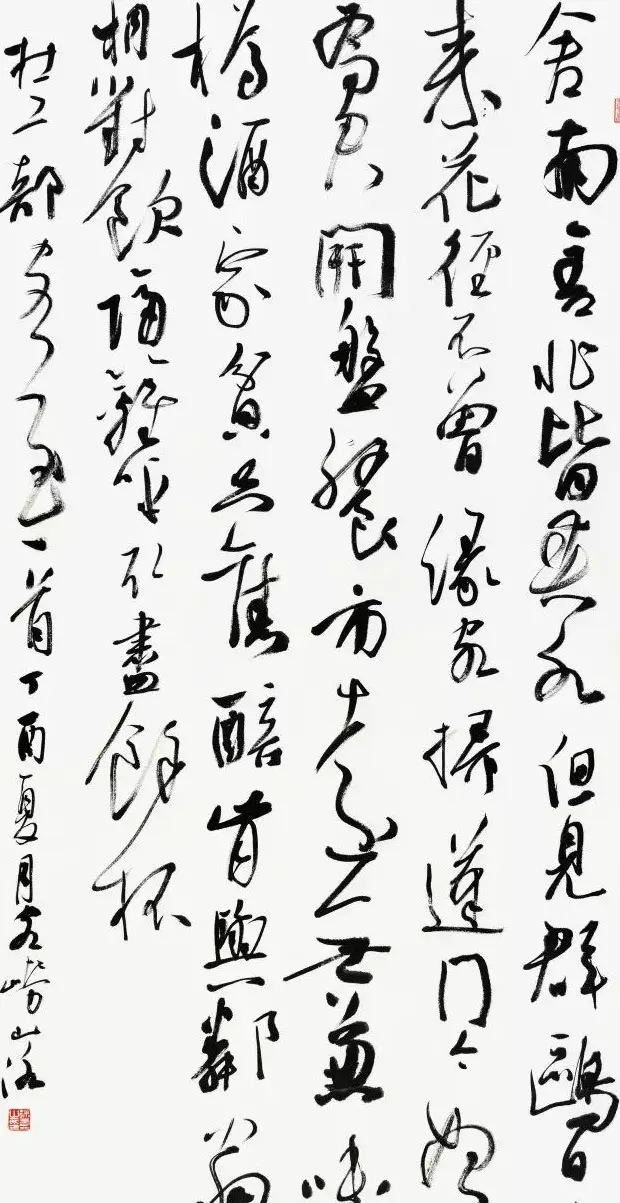 舍南舍北皆春水但見群鷗日
來花徑不曾緣客掃蓬門今始
為君開盤飧市遠無兼味
樽酒家貧只舊醅肯與鄰翁
相對飲隔籬呼取盡餘杯
杜工部客至一首丁酉夏月客嶗山